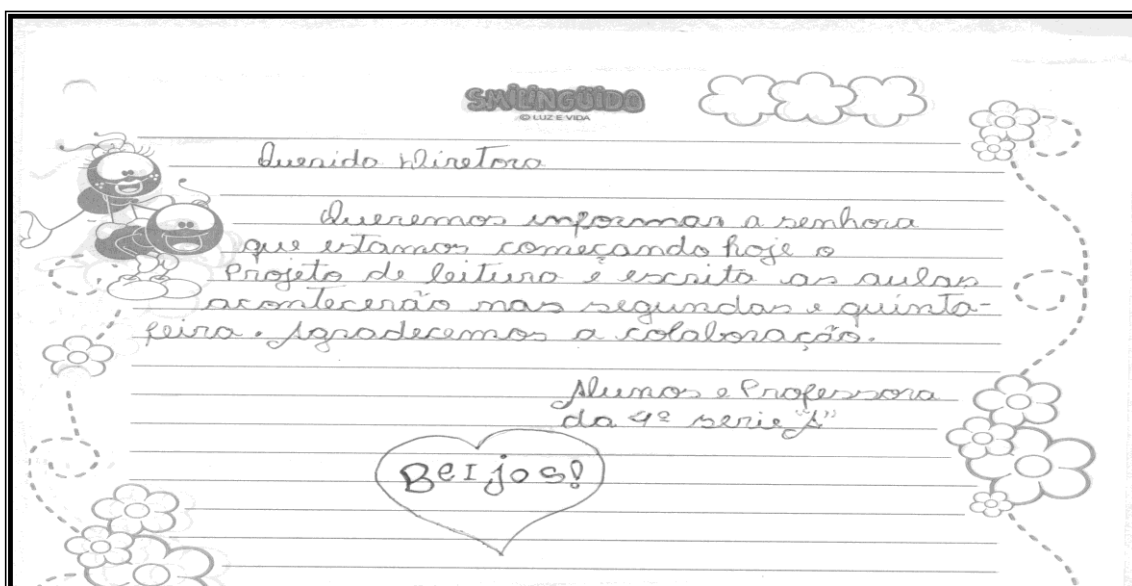 SMILINGÜIDO
© LUZ E VIDA
Querida Diretora
Queremos informar a senhora
que estamos começando hoje o
Projeto de leitura e escrita as aulas
acontecerão nas segundas e quinta-
feira. Agradecemos a colaboração.
Alunos e Professora
da 4ª serie "A"
BeIjos!